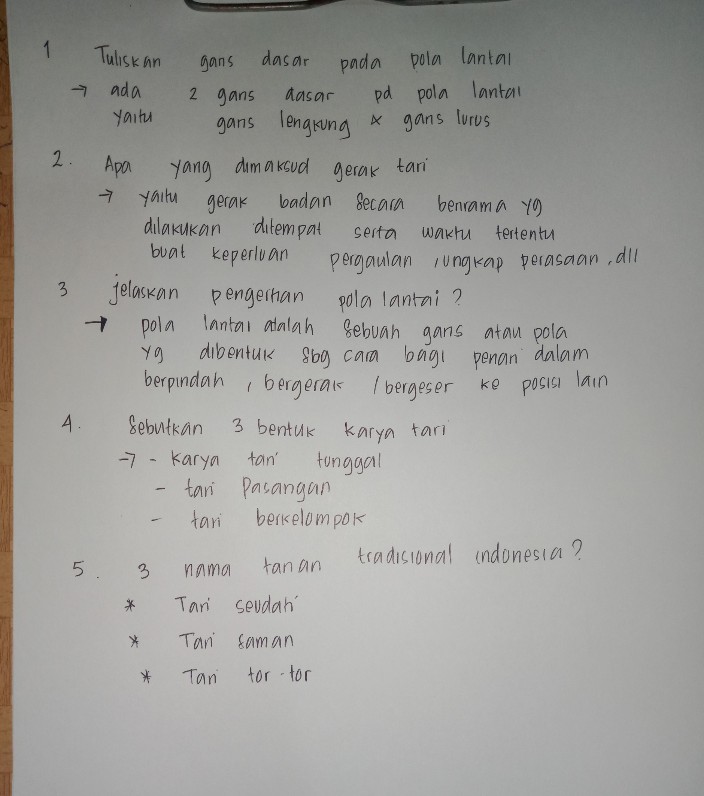 1 Tuliskan garis dasar pada pola lantai
→ ada 2 garis dasar pd pola lantai
yaitu garis lengkung & garis lurus
2. Apa yang dimaksud gerak tari
→ yaitu gerak badan secara berirama yg
dilakukan ditempat serta waktu tertentu
buat keperluan pergaulan, ungkap perasaan, dll
3 jelaskan pengertian pola lantai?
→ pola lantai adalah sebuah garis atau pola
yg dibentuk sbg cara bagi penari dalam
berpindah, bergerak / bergeser ke posisi lain
4. Sebutkan 3 bentuk karya tari
→ - karya tari tunggal
- tari Pasangan
- tari berkelompok
5. 3 nama tarian tradisional indonesia?
* Tari seudati
* Tari saman
* Tari tor-tor